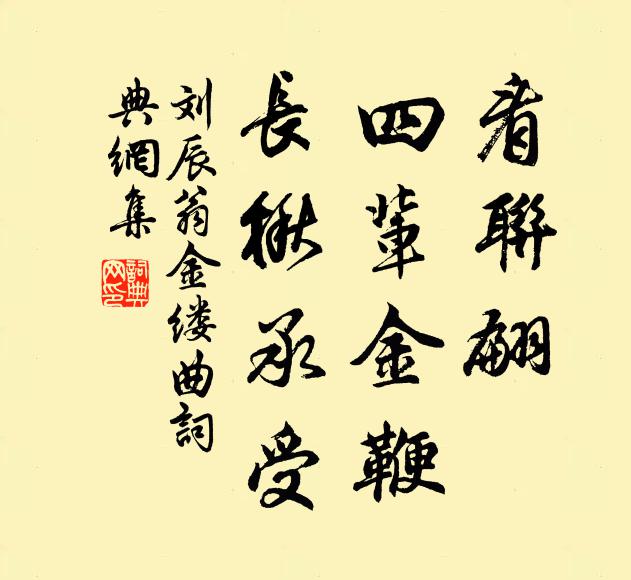 看聯翩
四輩金鞭
長楸承受
刘辰翁金缕曲詞
典網集
詞典
网印